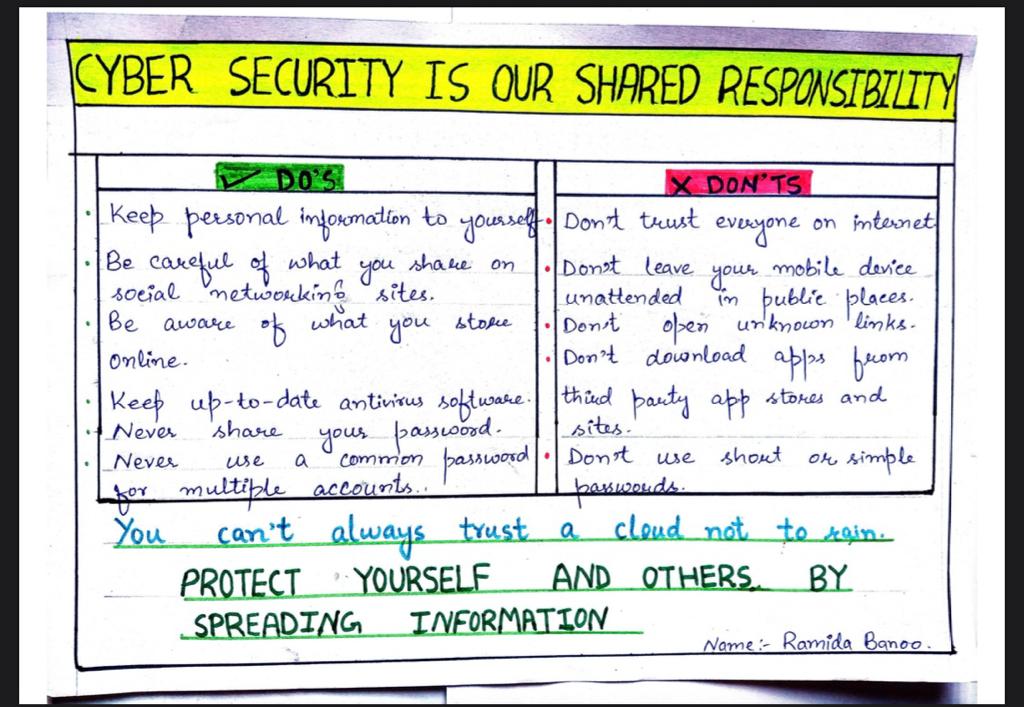 CYBER SECURITY IS OUR SHARED RESPONSIBILITY
✓ DO'S
• Keep personal information to yourself
• Be careful of what you share on
social networking sites.
• Be aware of what you store
online.
• Keep up-to-date antivirus software.
• Never share your password.
• Never use a common password
for multiple accounts..
X DON'TS
• Don't trust everyone on internet
• Don't leave your mobile device
unattended in public places.
• Don't open unknown links.
• Don't download apps from
third party app stores and
sites.
• Don't use short or simple
passwords.
You can't always trust a cloud not to rain.
PROTECT YOURSELF AND OTHERS BY
SPREADING INFORMATION
Name:- Ramida Banoo.